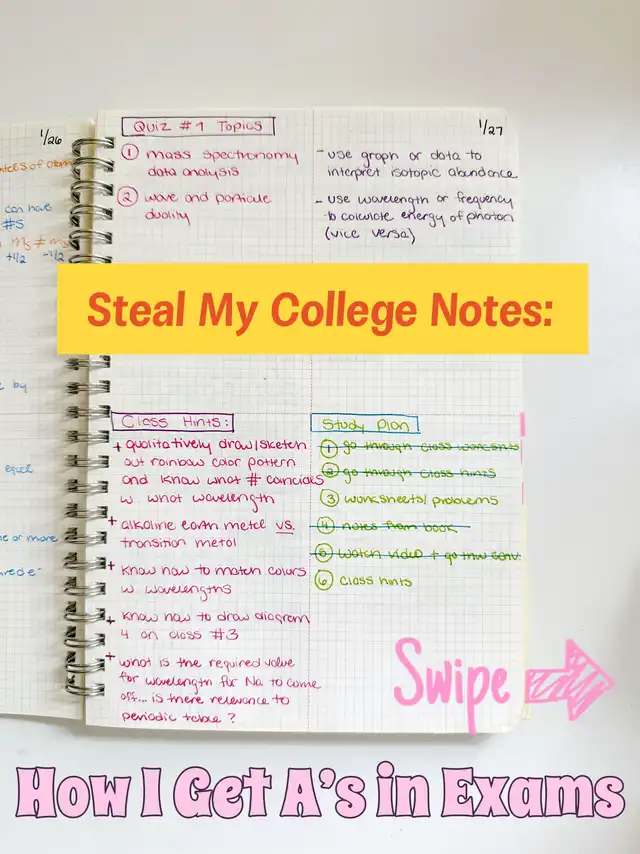 1/26
can have
#s
ms ≠ ms
+1/2 -1/2
e by
equal
e or more
Quiz #1 Topics
1/27
① mass spectronomy
data analysis
② wave and particule
duality
- use graph or data to
interpret isotopic abundance
- use wavelength or frequency
to calculate energy of photon
(vice versa)
Steal My College Notes:
Class Hints:
+ qualitatively draw/sketch
out rainbow color pattern
and know what # coincides
w. what wavelength
+ alkaline earth metal vs.
transition metal
+ know how to match colors
w. wavelengths
+ know how to draw diagram
4 on class #3
+ what is the required value
for wavelength for Na to come
off... is there relevance to
periodic table?
Study Plan
① go through class worksnts
② go through class hints
③ worksheets/problems
④ notes from book
⑤ watch video + go thru conv.
⑥ class hints
Swipe
How I Get A's in Exams